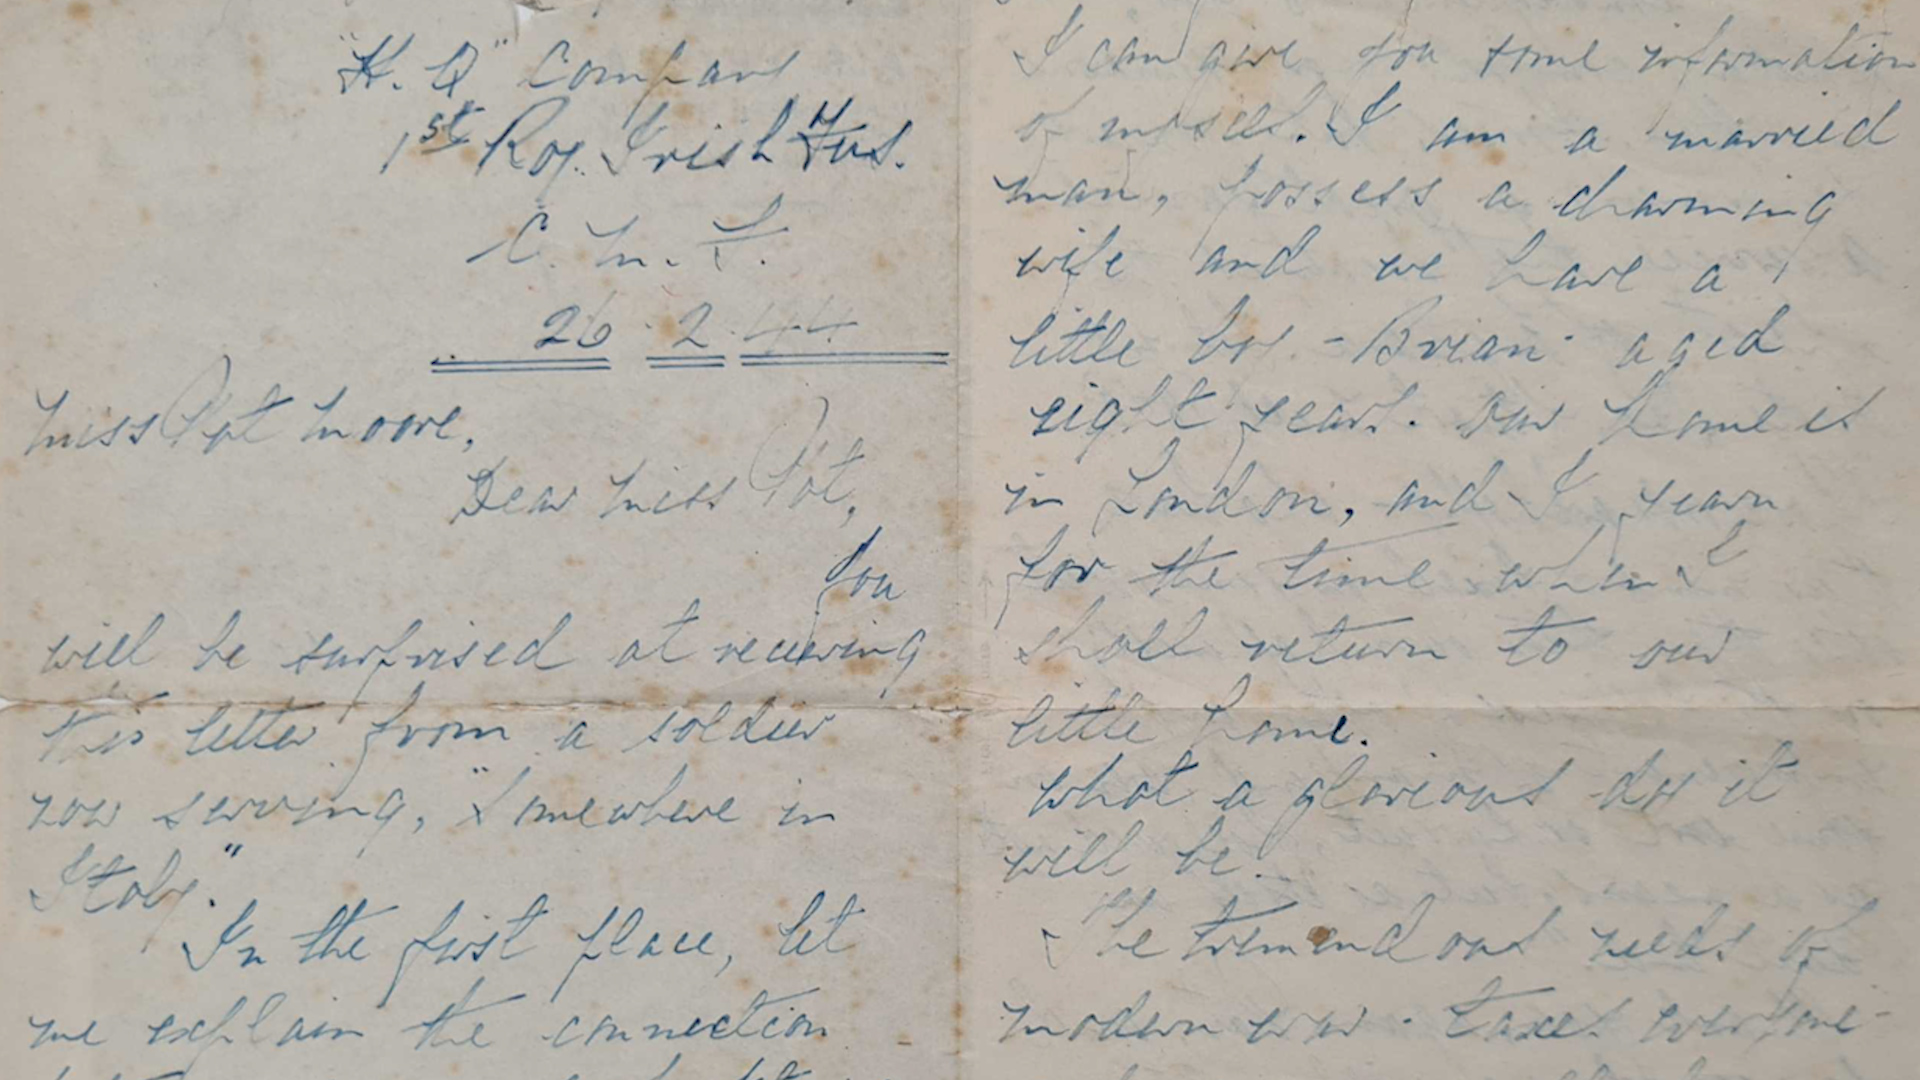 "H.Q" Company
1st Roy. Irish Fus.
C. M. F.
26.2.44
Miss Pat Moore,
Dear Miss Pat,
You
will be surprised at receiving
this letter from a soldier
now serving, "Somewhere in
Italy."
In the first place, let
me explain the connection
I can give you some information
of myself. I am a married
man, possess a charming
wife and we have a
little boy - Brian - aged
eight years. Our home is
in London, and I yearn
for the time when I
shall return to our
little home.
What a glorious day it
will be.
The tremendous needs of
modern war - taxes everyone -